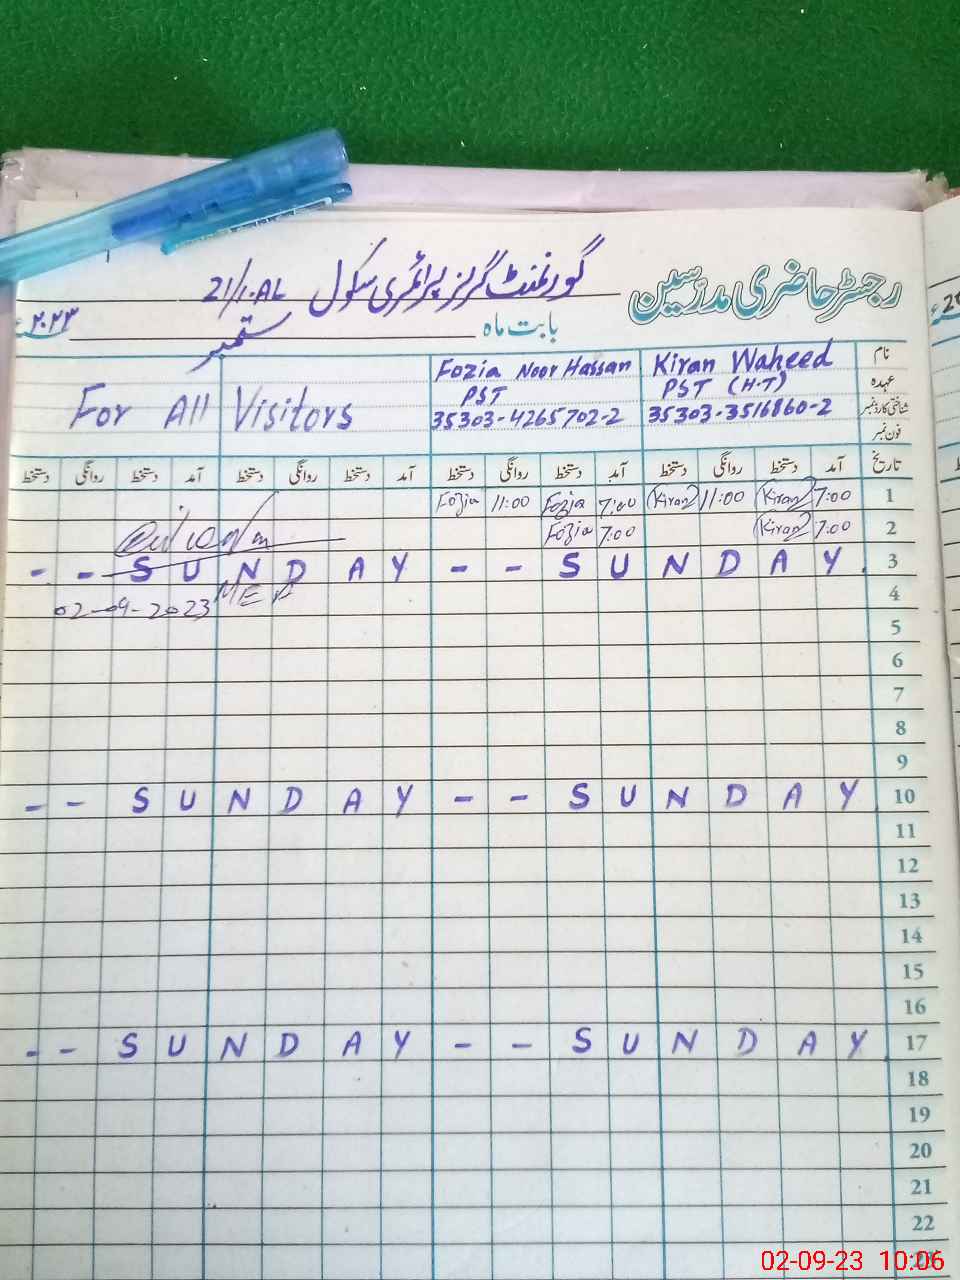 گورنمنٹ گرلز پرائمری سکول 21/1.AL
رجسٹر حاضری مدرسین
بابت ماہ ستمبر ۲۰۲۳ء
نام
عہدہ
شناختی کارڈ نمبر
فون نمبر
Kiran Waheed
PST (H.T)
35303-3516860-2
Fozia Noor Hassan
PST
35303-4265702-2
For All Visitors
تاریخ آمد دستخط روانگی دستخط آمد دستخط روانگی دستخط آمد دستخط روانگی دستخط آمد دستخط روانگی دستخط
Fozia 11:00 Fozia 7:00 Kiran 11:00 Kiran 7:00 1
Fozia 7:00 Kiran 7:00 2
- - S U N D A Y - - S U N D A Y 3
02-09-2023 MEA 4
5
6
7
8
9
- - S U N D A Y - - S U N D A Y 10
11
12
13
14
15
16
- - S U N D A Y - - S U N D A Y 17
18
19
20
21
22
23
02-09-23 10:06